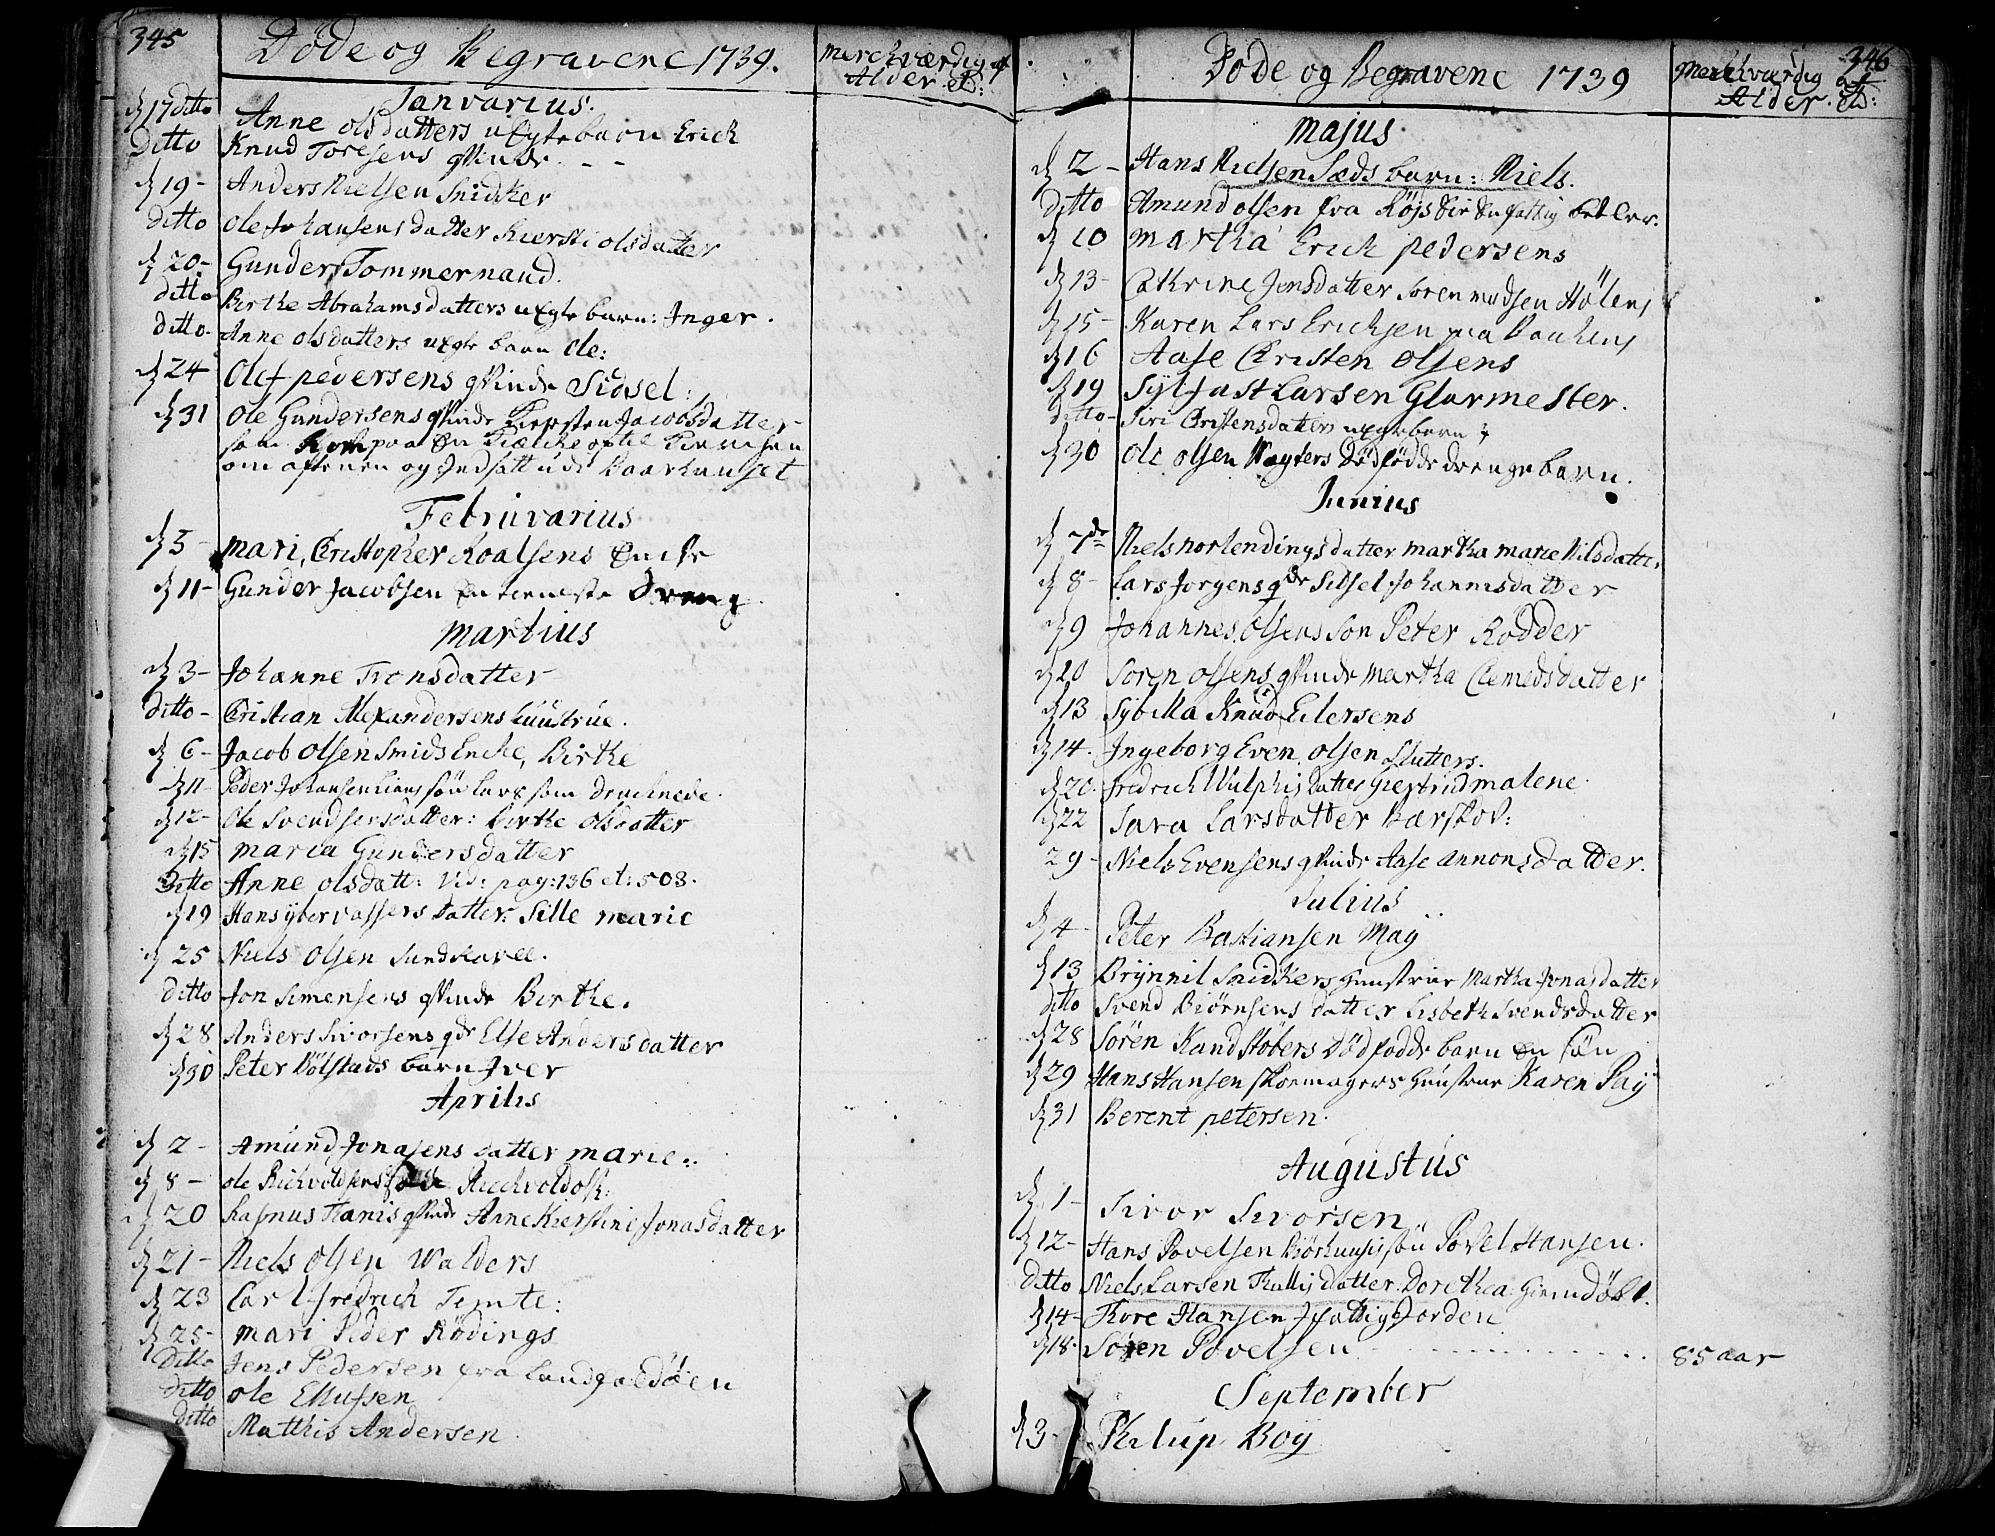 345
Døde og Begravene 1739.
Merckværdig af
Alder etc:
Janvarius.
d 17 ditto Anne olsdatters uEgte barn Erick
Ditto Knud Toresens qvinde - -
d 19 - Anders Nielsen Snidker
ditto ole Johansens datter Kiersti olsdatter
d 20 - Gunder Tommermand.
ditto Birthe Abrahamsdatters uEgte barn: Inger.
ditto Anne olsdatters uEgte barn Ole:
d 24 Olef pedersens qvinde Sidsel.
d 31 Ole Gundersens qvinde Kiersten Jacobsdatter
som kom paa
om aftenen og Indsatt udi Baarhuuset
Februvarius
d 5 - Mari, Christopher Roalsens Encke
d 11 - Gunder Jacobsen En tieneste Dreng.
Martius
d 3 - Johanne Tronsdatter
ditto - Christian Alexandersens huustrue.
d 6 - Jacob Olsen Smids Encke, Birthe
d 11 - Peder Johansen søn Lars som Druchnede.
d 12 - Ole Svendsens datter: Birthe Olsdatter
d 15 Maria Gundersdatter
Ditto Anne olsdatt: Vid: pag: 136 et: 503.
d 19 Hans datter: Sille Marie
d 25 Niels Olsen
ditto Jon Simensens qvinde Birthe.
d 28 Anders Sivorsens qde Else Andersdatter
d 30 Peter Bølstads barn Iver
Aprilis
d 2 - Amund Jonasens datter Marie.
d 8 - ole
d 20 Rasmus Hanis qvinde Anne Kierstine Jonasdatter
d 21 - Niels Olsen Walders
d 23 Carl fredrich Temte:
d 25 - Mari Peder Rødings
Ditto Jens Pedersen fra Landfaldøen
ditto Ole Ellufsen
ditto Matthis Andersen
346
Døde og Begravene 1739
Merckværdig af
Alder. etc:
Majus
d 2 - Hans Nielsen Sæds barn: Niels.
ditto Amund olsen fra En fattig betler.
d 10 Martha Erick pedersens
d 13 - Cathrine Jensdatter Soren madsen Hölens
d 15 - Karen Lars Ericksen paa Backens
d 16 Aase Christen Olsens
d 19 Sylfast Larsen Glarmester.
ditto - Siri Christensdatters uEgte barn
d 30 Ole olsen Dødfødde drengebarn.
Junius
d 7de Niels norlendings datter Martha Marie Nilsdatter
d 8 - Lars Jorgens qde Sitsel Johannisdatter
d 9 Johannes Olsens Søn Peter Rødder
d 10 Soren olsens qvinde Martha Clemedsdatter
d 13 Sybilla Knud Eilersens
d 14. Ingeborg Even olsen Slutters.
d 20. fredrich Wulphis datter Giertrud Malene.
d 22 Sara Larsdatter Bærskov:
29 - Niels Evensens qvinde Aase Annonsdatter.
Julius
d 4 - Peter Bastiansen May
d 13 Brynnil Snidkers Huustrue Martha Jonasdatter
ditto Svend Biørnsens datter Lisbeth Svendsdatter
d 28 Søren Kandstøbers Dødfødde barn En Søn
d 29 Hans Hansen skoemagers Huustrue Karen Pay
d 31 Berent petersen.
Augustus
d 1 - Sivor Sivorsen
d 12 - Hans Povelsen søn Povel Hansen.
Ditto Niels Larsen datter. Dorethea. hiemdøbt.
d 14 - Tore Hansen I fattigs Jorden
d 18. Søren Povelsen - - - - - - 85 aar
September
d 3 - Philup Boy